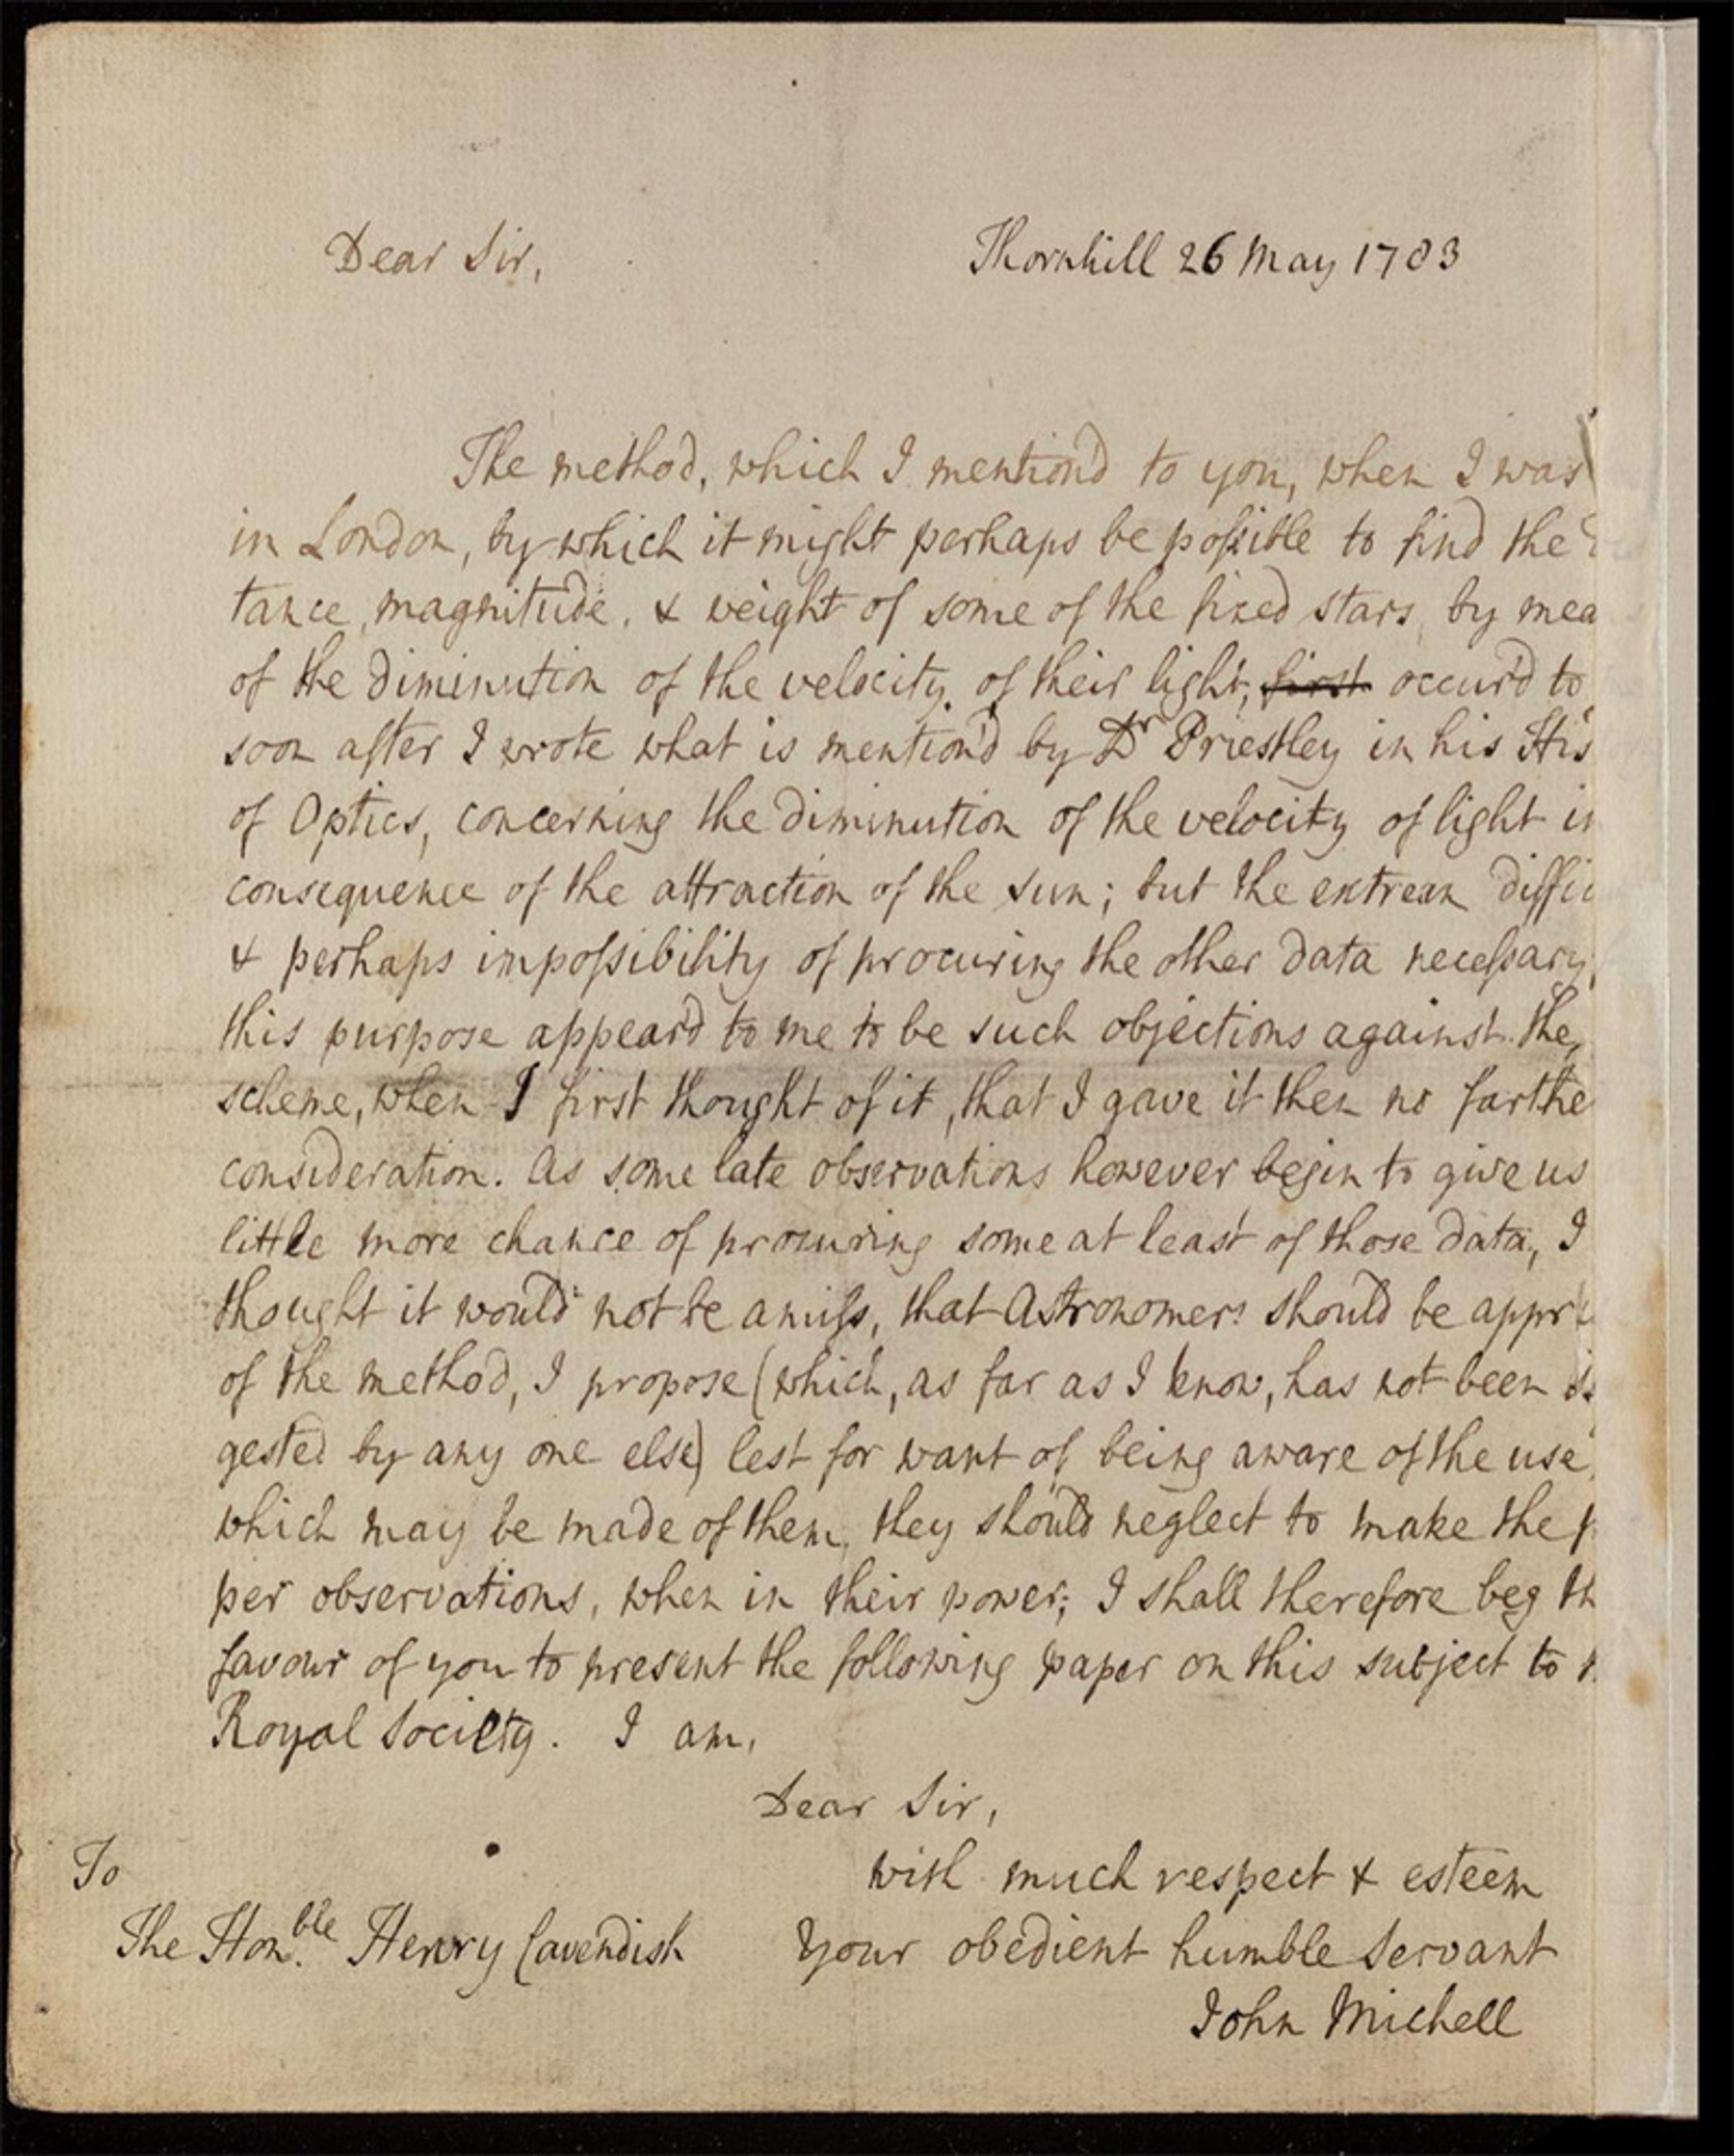 Dear Sir,
Thornhill 26 May 1783
The method, which I mention'd to you, when I was
in London, by which it might perhaps be poſsible to find the
tance, magnitude, & weight of some of the fixed stars, by mea
of the diminution of the velocity of their light, first occur'd to
soon after I wrote what is mention'd by Dr Priestley in his His
of Optics, concerning the diminution of the velocity of light in
consequence of the attraction of the sun; but the extream diffic
& perhaps impoſsibility of procuring the other data neceſsary
this purpose appear'd to me to be such objections against the
scheme, when I first thought of it, that I gave it then no farthe
consideration. As some late observations however begin to give us
little more chance of procuring some at least of those data, I
thought it would not be amiſs, that Astronomers should be appri
of the method, I propose (which, as far as I know, has not been
gested by any one else) lest for want of being aware of the use,
which may be made of them, they should neglect to make the p
per observations, when in their power; I shall therefore beg th
favour of you to present the following paper on this subject to t
Royal Society. I am,
Dear Sir,
with much respect & esteem
Your obedient humble Servant
John Michell
To
The Hon.ble Henry Cavendish